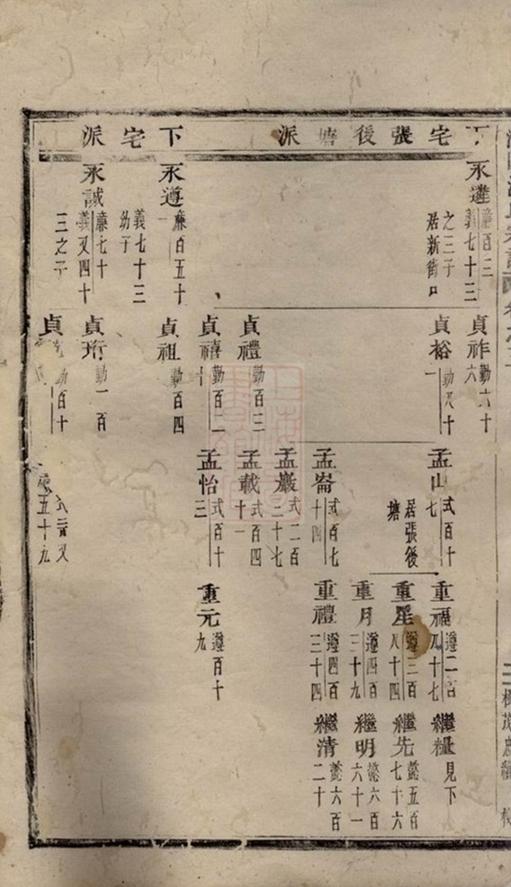 下宅張後塘派
永達
廉百三
義七十三
之三子
居新街口
貞祚
勤六十
六
貞裕
勤八十
一
孟山
式百十
七
居張後
塘
重福
遵二百
八十七
繼
見下
重星
遵三百
八十四
繼先
懿五百
七十六
重月
遵四百
三十九
繼明
懿六百
六十一
孟崙
式百七
十四
重禮
遵四百
三十四
繼清
懿六百
二十
孟巖
式二百
二十七
貞禮
勤百三
孟載
式百四
十一
貞禧
勤百二
十
孟怡
式百十
三
重元
遵百十
九
下宅派
永遵
廉百五十
義七十三
幼子
貞祖
勤百四
永誠
廉七十
義又四十
三之子
貞珩
勤一百
貞
勤百十
五十九